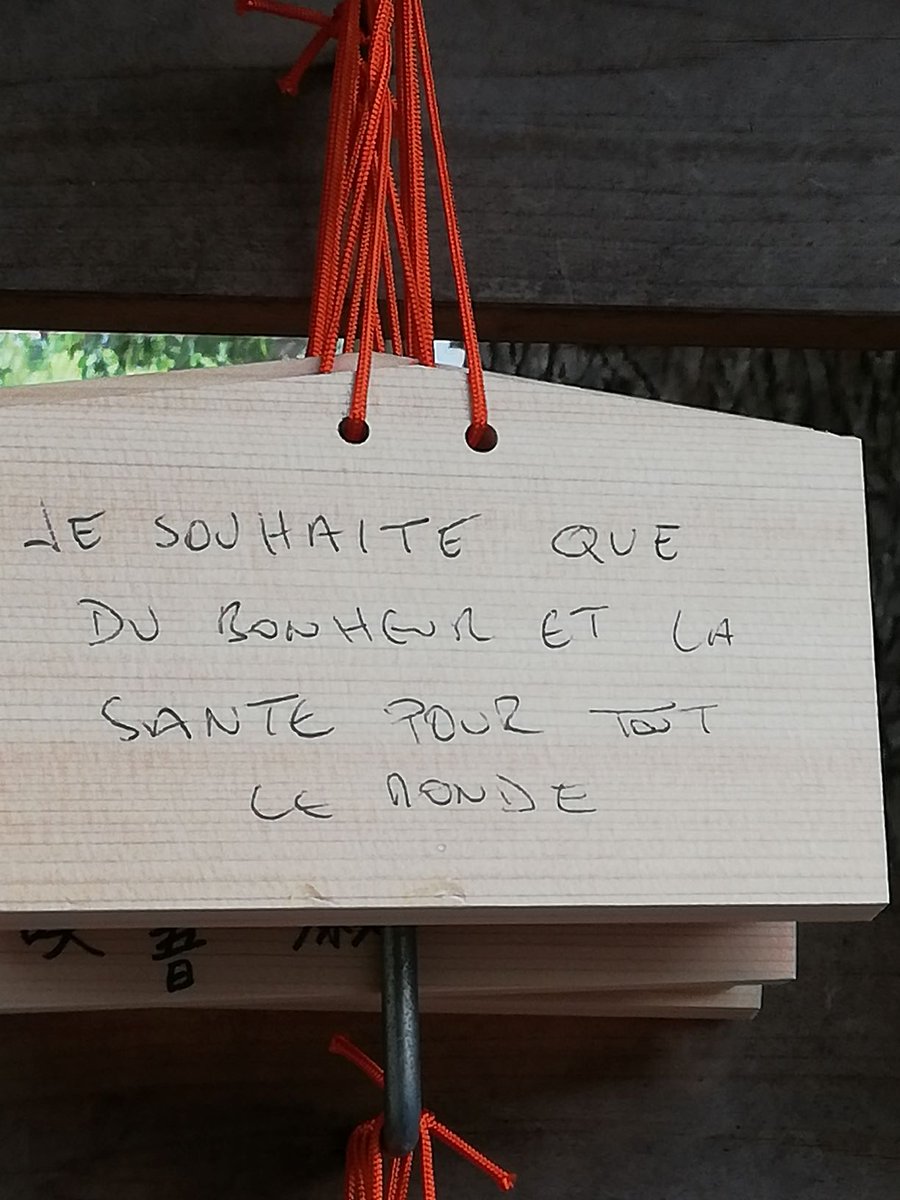 JE SOUHAITE QUE
DU BONHEUR ET LA
SANTE POUR TOUT
LE MONDE